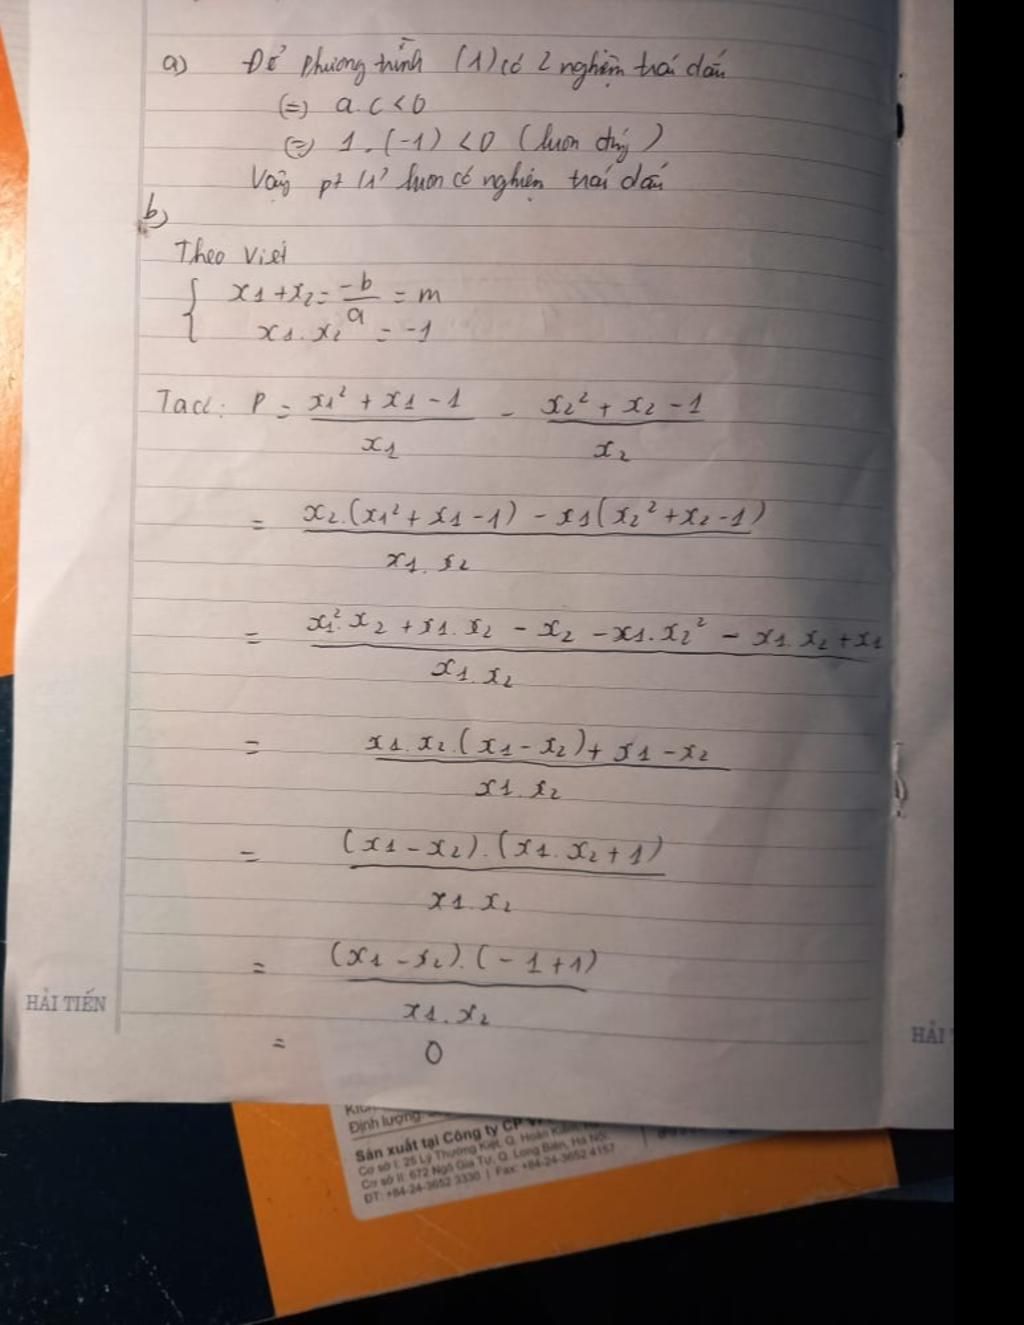 a) Để phương trình (1) có 2 nghiệm trái dấu
(=) a.c < 0
(=) 1.(-1) < 0 (luôn đúng)
Vậy pt (1) luôn có nghiệm trái dấu
b)
Theo Viet
{ x1 + x2 = -b/a = m
x1.x2 = -1
Ta có: P = (x1² + x1 - 1)/x1 - (x2² + x2 - 1)/x2
= (x2.(x1² + x1 - 1) - x1(x2² + x2 - 1))/(x1.x2)
= (x1².x2 + x1.x2 - x2 - x1.x2² - x1.x2 + x1)/(x1.x2)
= (x1.x2.(x1 - x2) + x1 - x2)/(x1.x2)
= ((x1 - x2).(x1.x2 + 1))/(x1.x2)
= ((x1 - x2).(-1 + 1))/(x1.x2)
= 0
HẢI TIẾN
HẢI
Định lượng:
Sản xuất tại Công ty CP
Cơ sở I: 25 Lý Thường Kiệt, Q. Hoàn Kiếm,
Cơ sở II: 672 Ngô Gia Tự, Q. Long Biên, Hà Nội
ĐT: +84-24-3652 3330 | Fax: +84-24-3652 4157